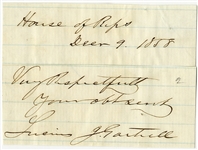 House of Reps
Decr 9. 1858
Very Respectfully
Your obt servt
Lucius J Gartrell